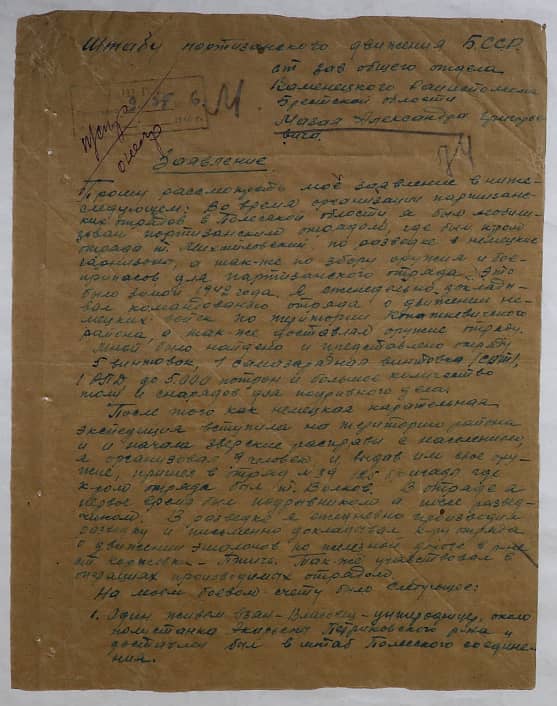 Штабу партизанского движения БССР.
от зав общего отдела
Каменецкого Райисполкома
Брестской области
Мазая Александра Григорь-
вича.
Заявление
Прошу рассмотреть моё заявление в ниже-
следующем: Во время организации партизанс-
ких отрядов в Полесской области я был
партизанским отрядом, где был к-ром
отряда т. Михайловский, по разведке в немецкие
гарнизоны, а так-же по сбору оружия и бое-
припасов для партизанского отряда. Это
было зимой 1942 года. Я еженедельно доклады-
вал командованию отряда о движении не-
мецких войск по территории Копаткевичского
района, а так же доставлял оружие отряду.
Мной было найдено и представлено отряду
5 винтовок, 1 самозарядная винтовка (СВТ),
1 до 5.000 патрон и большое количество
тол и снарядов для подрывного дела.
После того как немецкая карательная
экспедиция вступила на территорию района
и начала зверские расправы с населением,
я организовал человек и выдав им своё ору-
жие, пришёл в отряд 125 бригады где
к-ром отряда был т. Волков. В отряде я
первое время был подрывником а после развед-
чиком. В разведке я ежедневно производил
разведку и письменно докладывал к-ру отряда
о движении эшелонов по железной дороге в р-не
ст Коржевка - Птичь. Так-же участвовал в
операциях производимых отрядом.
На моём боевом счету было следующее:
1. Один живым взят - Власовец - унтерофицер, около
полустанка Петриковского р-на и
доставлен был в штаб Полесского соедине-
ния.